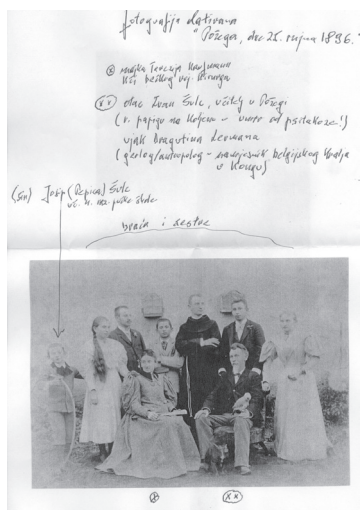 fotografija datirana
"Požega, dne 25. rujna 1896."
ⓧ majka Terezija
Kći bečkog voj. kirurga
ⓧⓧ otac Ivan Šulc, učitelj u Požegi
(v. papigu na koljenu – umro od psitakoze!)
ujak Dragutina Lermana
(geolog/antropolog – belgijskog kralja
u Kongu)
(sin) Josip (Pepica) Šulc
braća i sestre
ⓧ
ⓧⓧ